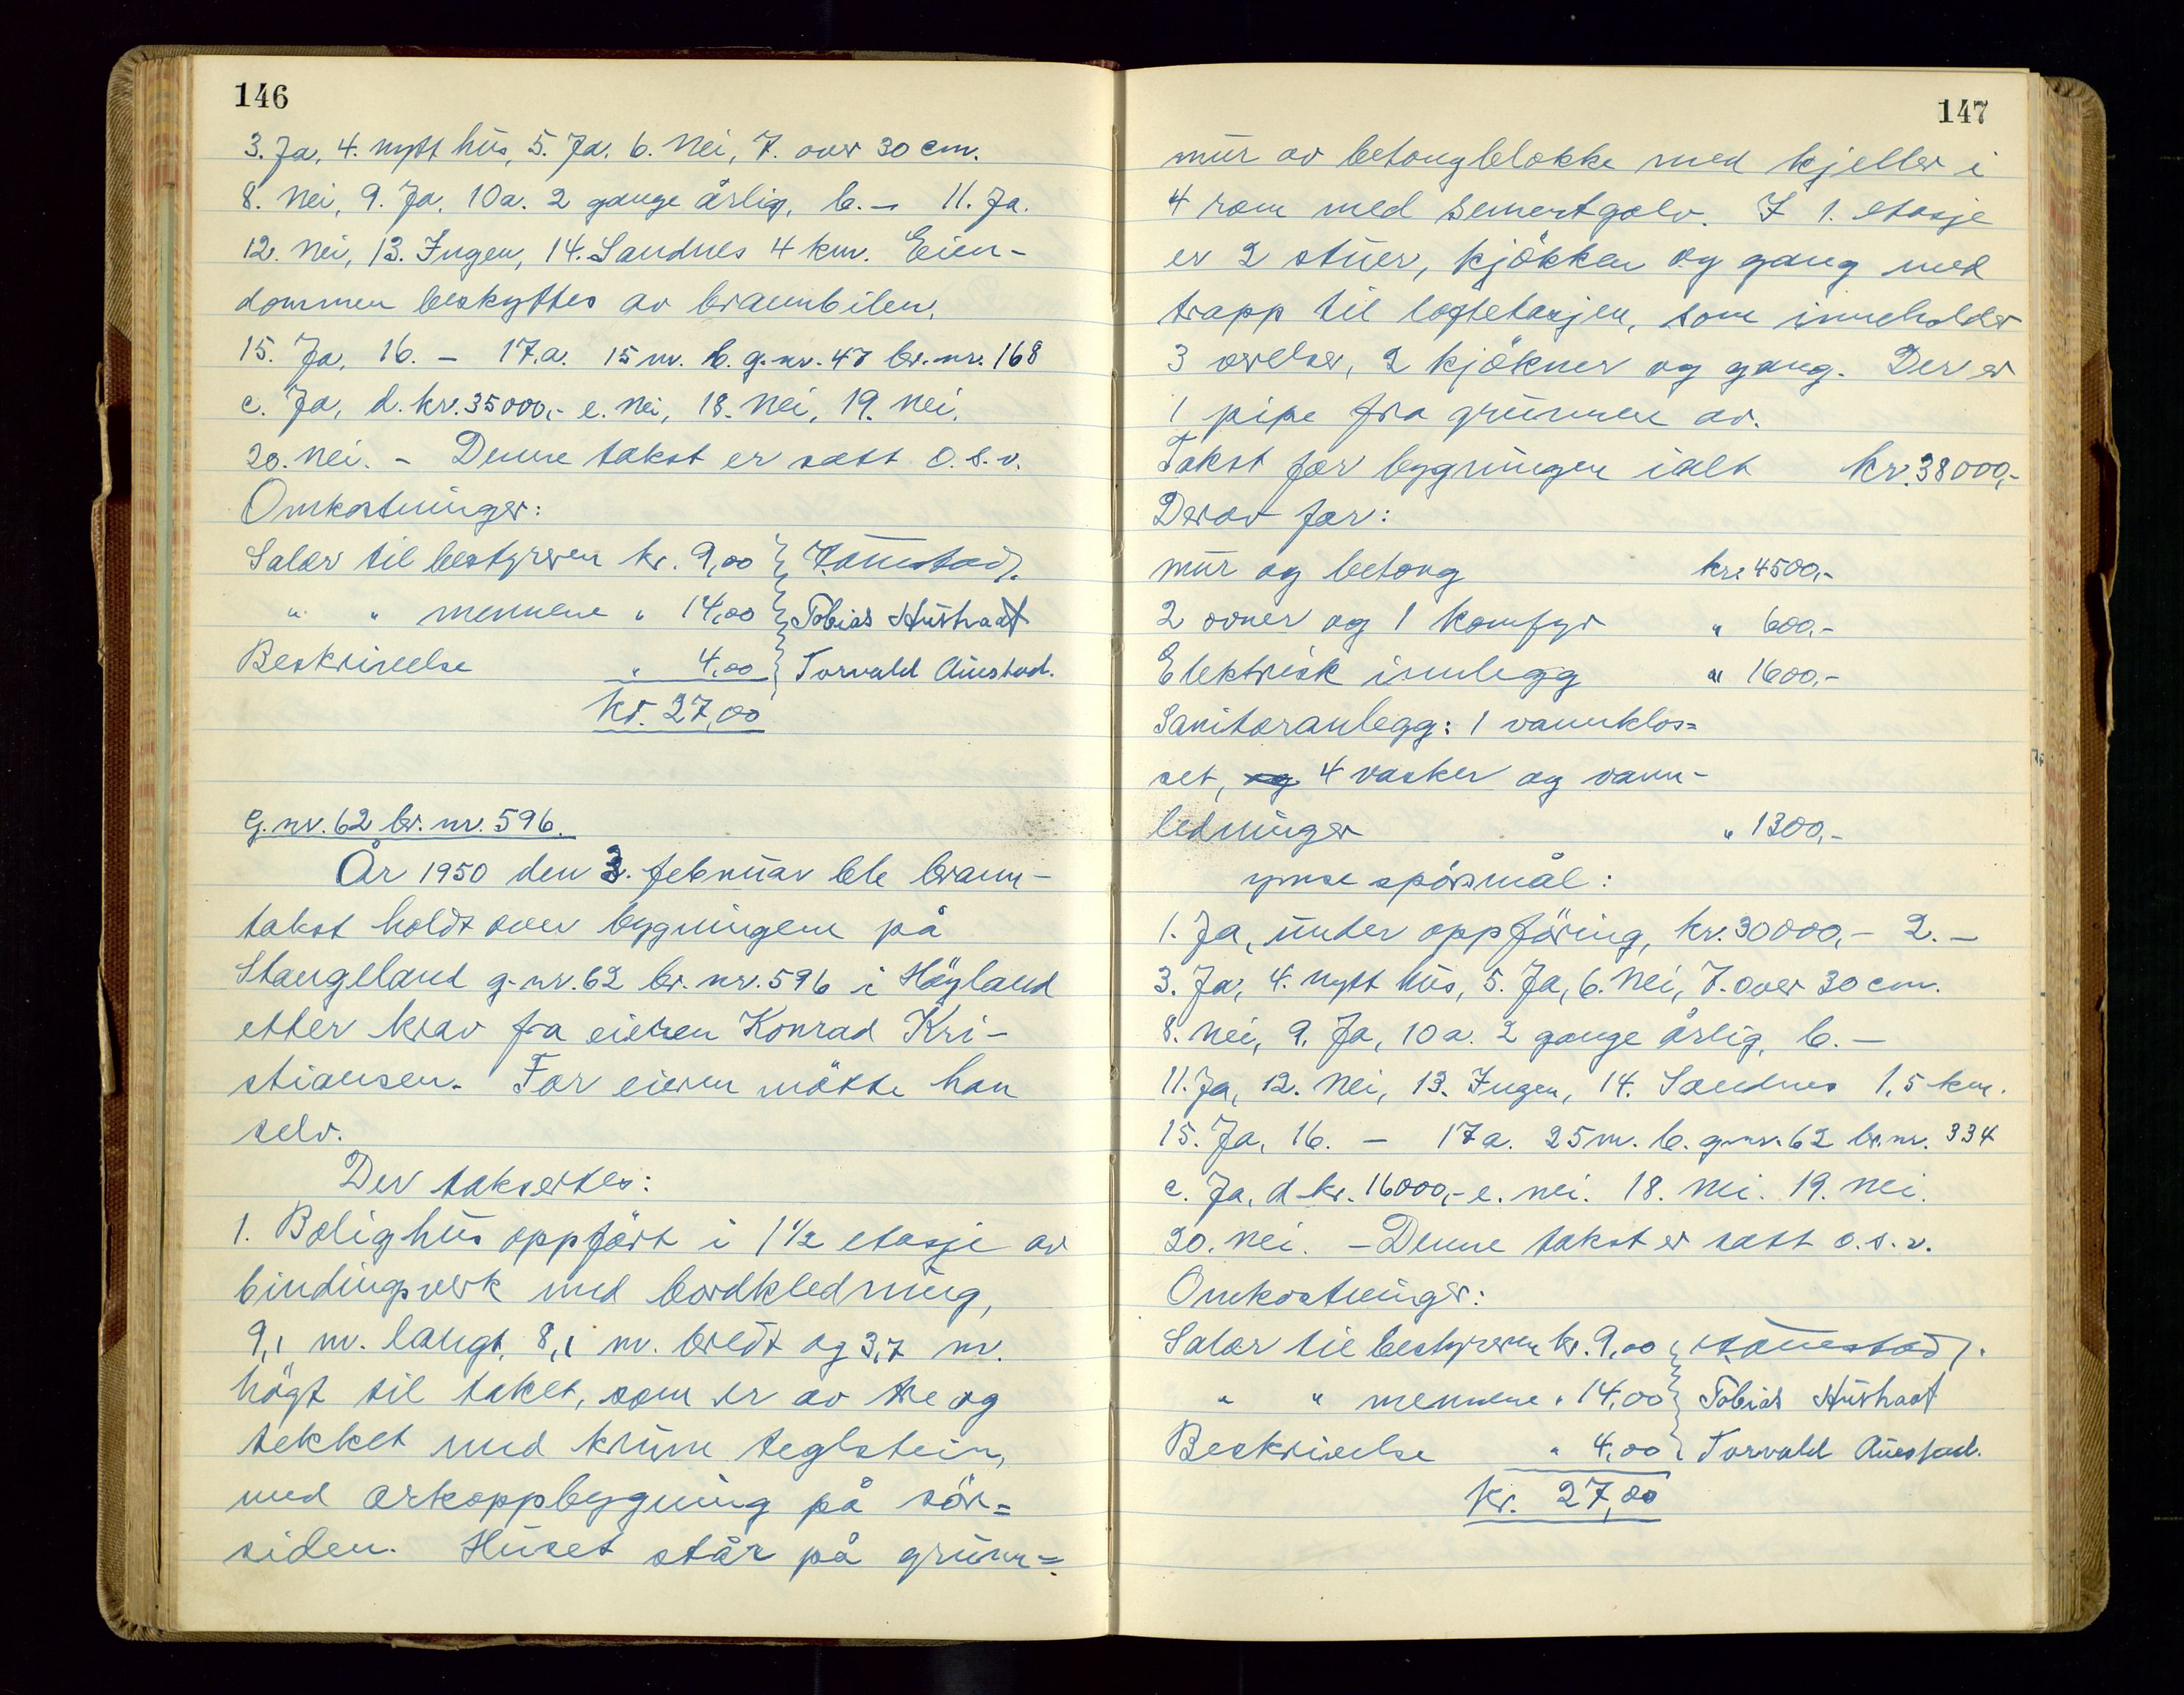 146
3. Ja, 4. nytt hus, 5. Ja. 6. Nei, 7. over 30 cm.
8. Nei, 9. Ja, 10a. 2 gange årlig, b. – 11. Ja.
12. Nei, 13. Ingen, 14. Sandnes 4 km. Eien-
dommen beskyttes av brannbilen.
15. Ja, 16. – 17.a. 15 m. b. g.nr. 47 br.nr. 168
c. Ja, d. kr. 35000,- e. Nei, 18. Nei, 19. Nei,
20. Nei. – Denne takst er satt o.s.v.
Omkostninger:
Salær til bestyreren kr. 9,00
" " mennene " 14,00 } Tobias Hustraat
Beskrivelse " 4,00 } Torvald Auestad.
Kr. 27,00
G.nr. 62 br. nr. 596.
År 1950 den 3. februar ble brann-
takst holdt over bygningene på
Stangeland g.nr. 62 br. nr. 596 i Höyland
etter krav fra eieren Konrad Kri-
stiansen. For eieren mötte han
selv.
Der taksertes:
1. Bolighus oppfört i 1 1/2 etasje av
bindingsverk med bordkledning,
9,1 m. langt, 8,1 m. bredt og 3,7 m.
högt til taket, som er av tre og
tekket med krum teglstein,
med arkoppbygning på sör=
siden. Huset står på grunn=
147
mur av betongblokke med kjeller i
4 rom med sementgolv. I 1. etasje
er 2 stuer, kjökken og gang med
trapp til loftetasjen, som inneholder
3 verelser, 2 kjökner og gang. Der er
1 pipe fra grunnen av.
Takst for bygningen ialt kr. 38000,-
Derav for:
mur og betong kr. 4500,-
2 ovner og 1 komfyr " 600,-
Elektrisk innlegg " 1600,-
Sanitæranlegg: 1 vannklos=
set, og 4 vasker og vann-
ledninger " 1300,-
ymse spörsmål:
1. Ja, under oppföring, kr. 30000,- 2. –
3. Ja, 4. nytt hus, 5. Ja, 6. Nei, 7. over 30 cm.
8. Nei, 9. Ja, 10a. 2 gange årlig, b. –
11. Ja, 12. Nei, 13. Ingen, 14. Sandnes 1,5 km.
15. Ja, 16. – 17a. 25 m. b. g.nr. 62 br.nr. 334
c. Ja, d. kr. 16000,- e. nei. 18. Nei. 19. Nei.
20. Nei. – Denne takst er satt o.s.v.
Omkostninger:
Salær til bestyreren kr. 9,00
" " mennene " 14,00 } Tobias Hustraat
Beskrivelse " 4,00 } Torvald Auestad.
Kr. 27,00